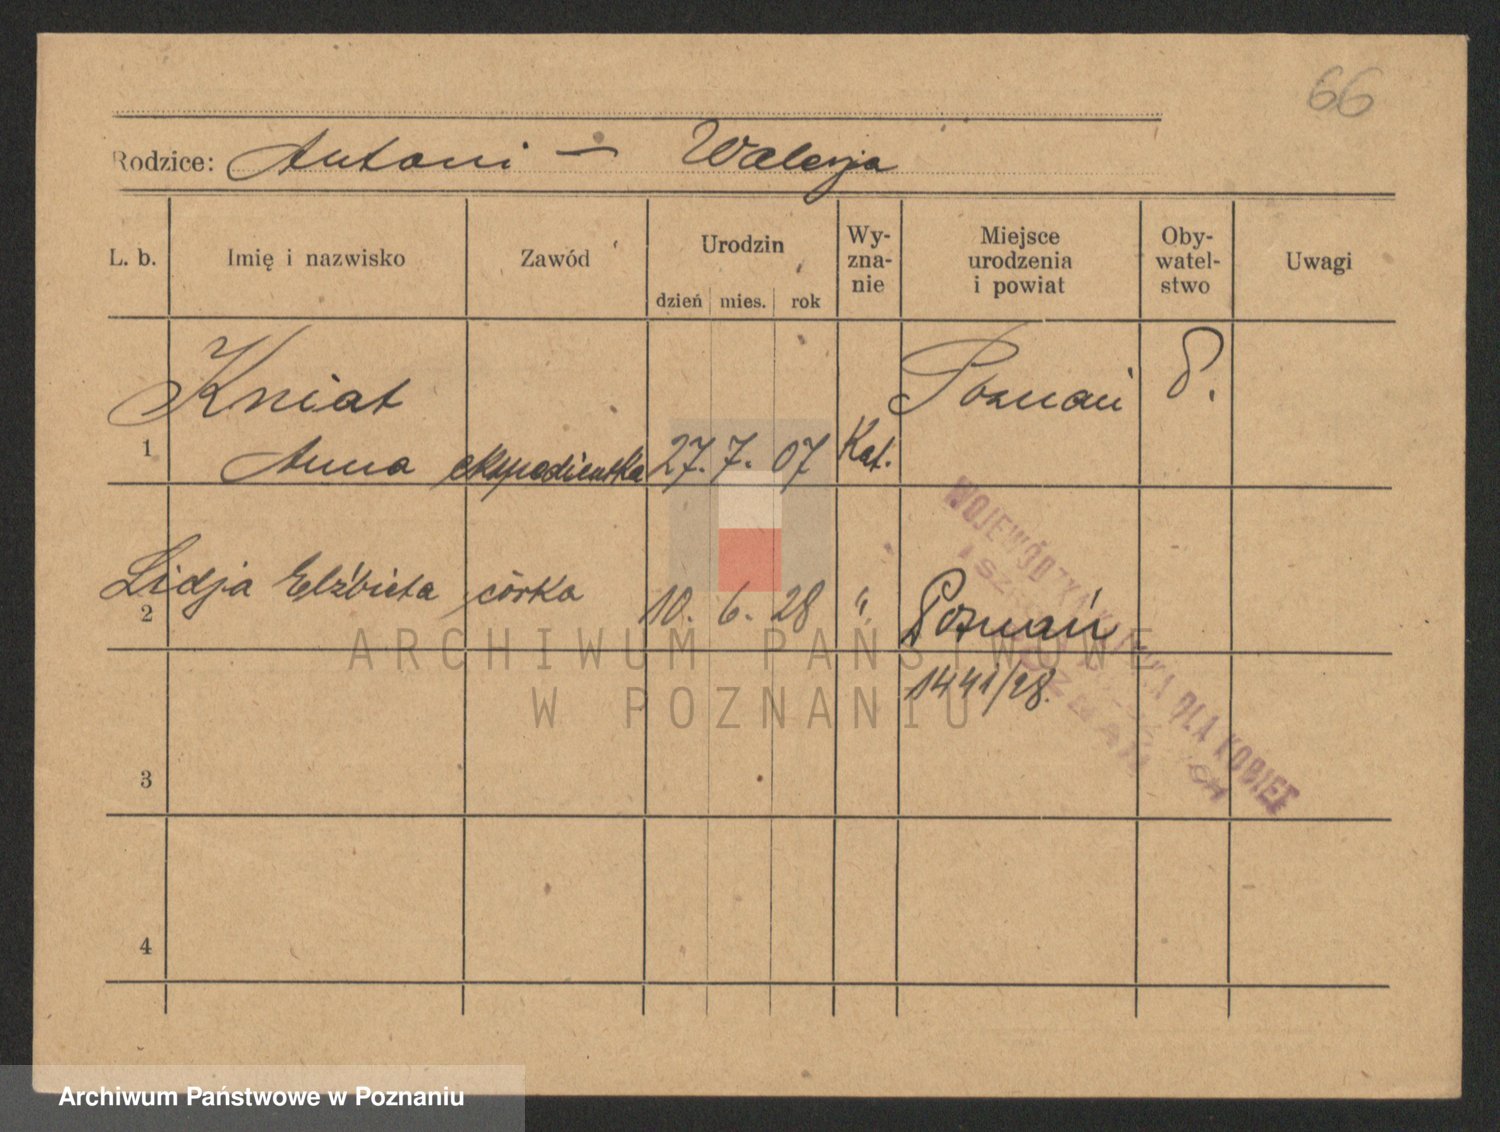 66
Rodzice: Antoni – Walerja
L. b. Imię i nazwisko Zawód Urodzin dzień mies. rok Wy-zna-nie Miejsce urodzenia i powiat Oby-watel-stwo Uwagi
Kniat Poznań P.
1 Anna ekspedientka 27. 7. 07 Kat.
2 Lidja Elżbieta córka 10. 6. 28 " Poznań
1441/28.
3
4
WOJEWÓDZKA KLINIKA DLA KOBIET
POZNAŃ
ARCHIWUM PAŃSTWOWE
W POZNANIU
Archiwum Państwowe w Poznaniu